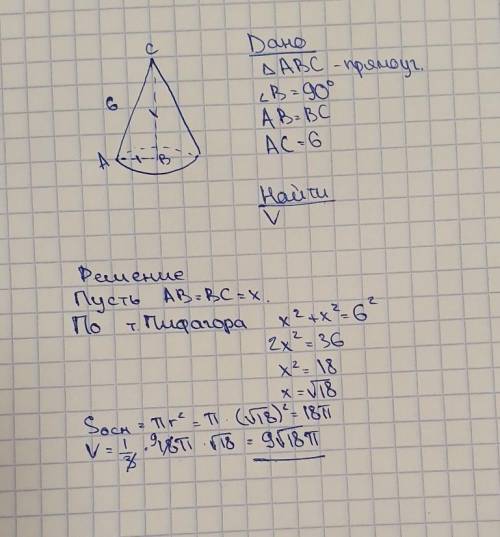 C
6
A
B
Дано
△ABC - прямоуг.
∠B = 90°
AB = BC
AC = 6
Найти
V
Решение
Пусть AB = BC = x.
По т. Пифагора x² + x² = 6²
2x² = 36
x² = 18
x = √18
Sосн = πr² = π · (√18)² = 18π
V = 1/3 · ⁹18π · √18 = 9√18π